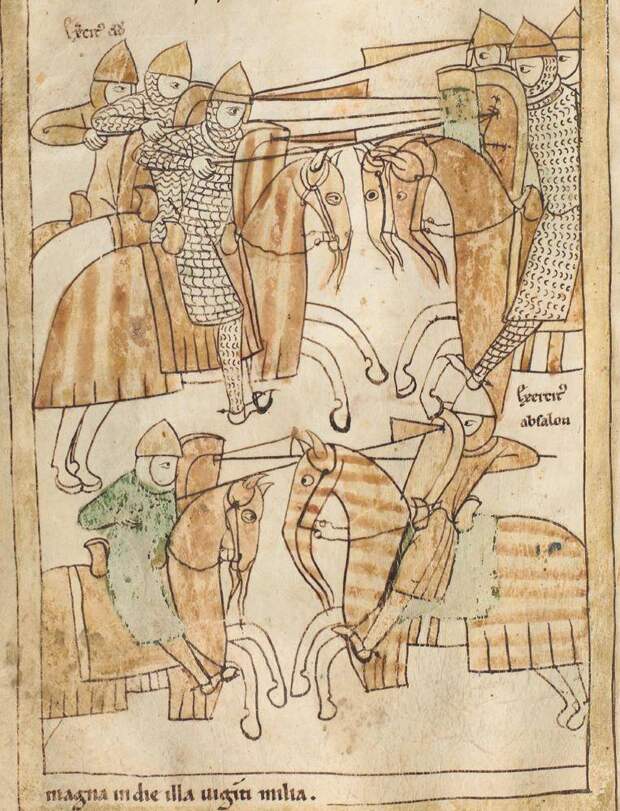 Ex̄citꝰ dd̄
Exercitꝰ
absalon
magna in die illa uigīti milia.